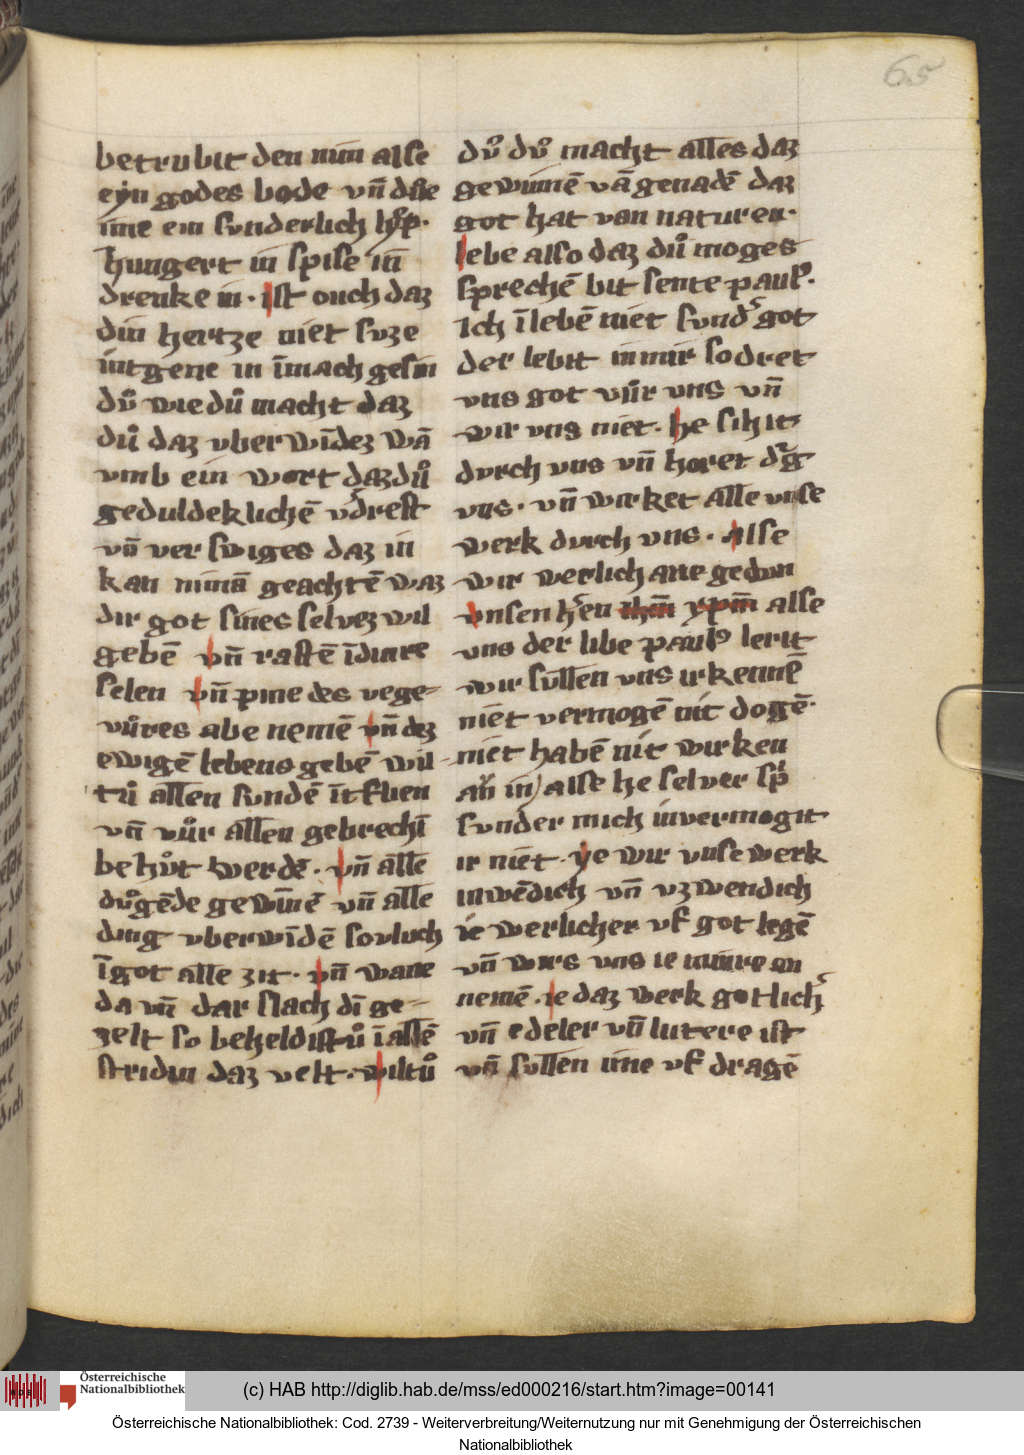 65
betrubit den nim alse
eyn godes bode vn̄ dӯie
ime ein sunderlich hͦp.
hungert in spise in̄
drenke in. ist ouch daz
din hertze niet suze
intgene in īmach gesin
duͦ wie duͦ macht daz
duͦ daz vber wīdez wā
vmb ein wort daz duͦ
geduldeklichē v͛drest
vn̄ ver swiges daz in
kan niman̄ geachtē waz
dir got sines selvez wil
gebē vn̄ rastē īdinre
selen vn̄ pine des vege-
vuͦres abe nemē vn̄ dez
ewigē lebens gebē wil-
tuͦ allen sundē īt flien
vn̄ vuͦr allen gebrechī
behuͦt werdē. vn̄ alle
duͦgēde gewīnē vn̄ alle
ding vberwīdē so vluch
īgot alle zit. vn̄ wane
da vn̄ dar slach dī ge-
zelt so beheldistuͦ ī allē
stridin daz velt. wiltuͦ
duͦ duͦ macht alles daz
gewinnē vā genadē daz
got hat van naturen.
lebe also daz duͦ moges
sprechē bit sente pauls.
Ich īlebē niet sund͛ got
der lebit in mir so dret
vns got vu̇r vns vn̄
wir vns niet. he sihit
durch vns vn̄ horet d͛g
vns. vn̄ wirket alle vnse
werk durch vns. alse
wir werlich ane gedon
vnsen h͛en ihm̄ xpm̄ alse
vns der libe paulꝰ lerit
wir sullen vns irkennē
niet vermogē nit dogē.
niet habē nit wirken
an in) alse he selver spͥ
sunder mich invermogit
ir niet. ye wir vnse werk
inwēdich vn̄ vzwendich
ie werlicher vf got legē
vn̄ wirs vns ie minre an
nemē. ie daz werk gotlich͛
vn̄ edeler vn̄ lutere ist
vn̄ sullen ime vf dragē
Österreichische
Nationalbibliothek
(c) HAB http://diglib.hab.de/mss/ed000216/start.htm?image=00141
Österreichische Nationalbibliothek: Cod. 2739 - Weiterverbreitung/Weiternutzung nur mit Genehmigung der Österreichischen
Nationalbibliothek